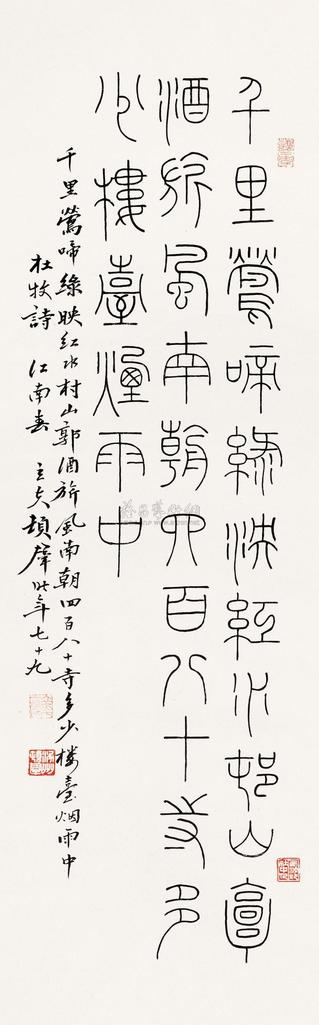 千里莺啼綠映紅水邨山郭
酒旂風南朝四百八十寺多
少樓臺煙雨中
千里鶯啼綠映红水村山郭酒旂風南朝四百八十寺多少楼臺烟雨中
杜牧詩 江南春 立夫 時年七十九